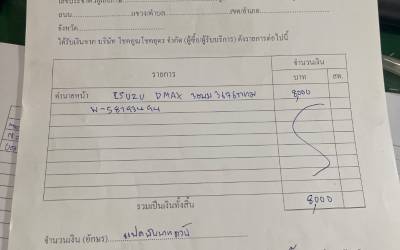 ถนน แขวง/ตำบล เขต/อำเภอ
จังหวัด
ได้รับเงินจาก บริษัท โชคคูณโชคยูคาร จำกัด (ผู้ซื้อ/ผู้รับบริการ) ดังรายการต่อไปนี้
รายการ จำนวนเงิน
บาท สต.
ค่านายหน้า ISUZU DMAX 8,000
รวมเป็นเงินทั้งสิ้น 8,000
จำนวนเงิน (อักษร) แปดพันบาทถ้วน